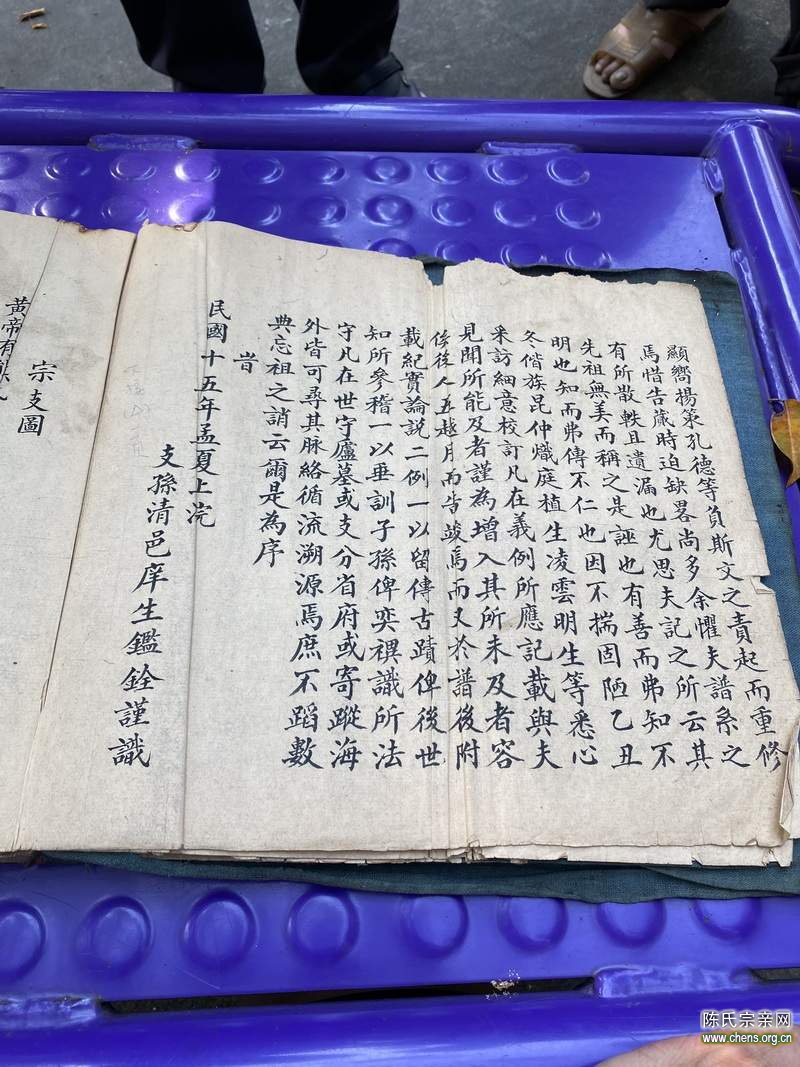 顯嚮揚策孔德等負斯文之責起而重修
焉惜告蕆時迫缺畧尚多余懼夫譜系之
有所散軼且遺漏也尤思夫記之所云其
先祖無美而稱之是誣也有善而弗知不
明也知而弗傳不仁也因不揣固陋乙丑
冬偕族昆仲熾庭植生凌雲明生等悉心
釆訪細意校訂凡在義例所應記載與夫
見聞所能及者謹為增入其所未及者容
俟後人五越月而告竣焉而又於譜後附
載紀實論說二例一以留傳古蹟俾後世
知所參稽一以垂訓子孫俾奕禩識所法
守凡在世守廬墓或支分省府或寄蹤海
外皆可尋其脉絡循流溯源焉庶不蹈數
典忘祖之誚云爾是為序
旹
民國十五年孟夏上浣
支孫清邑庠生鑑銓謹識
宗支圖
黄帝有
陈氏宗亲网
www.chens.org.cn